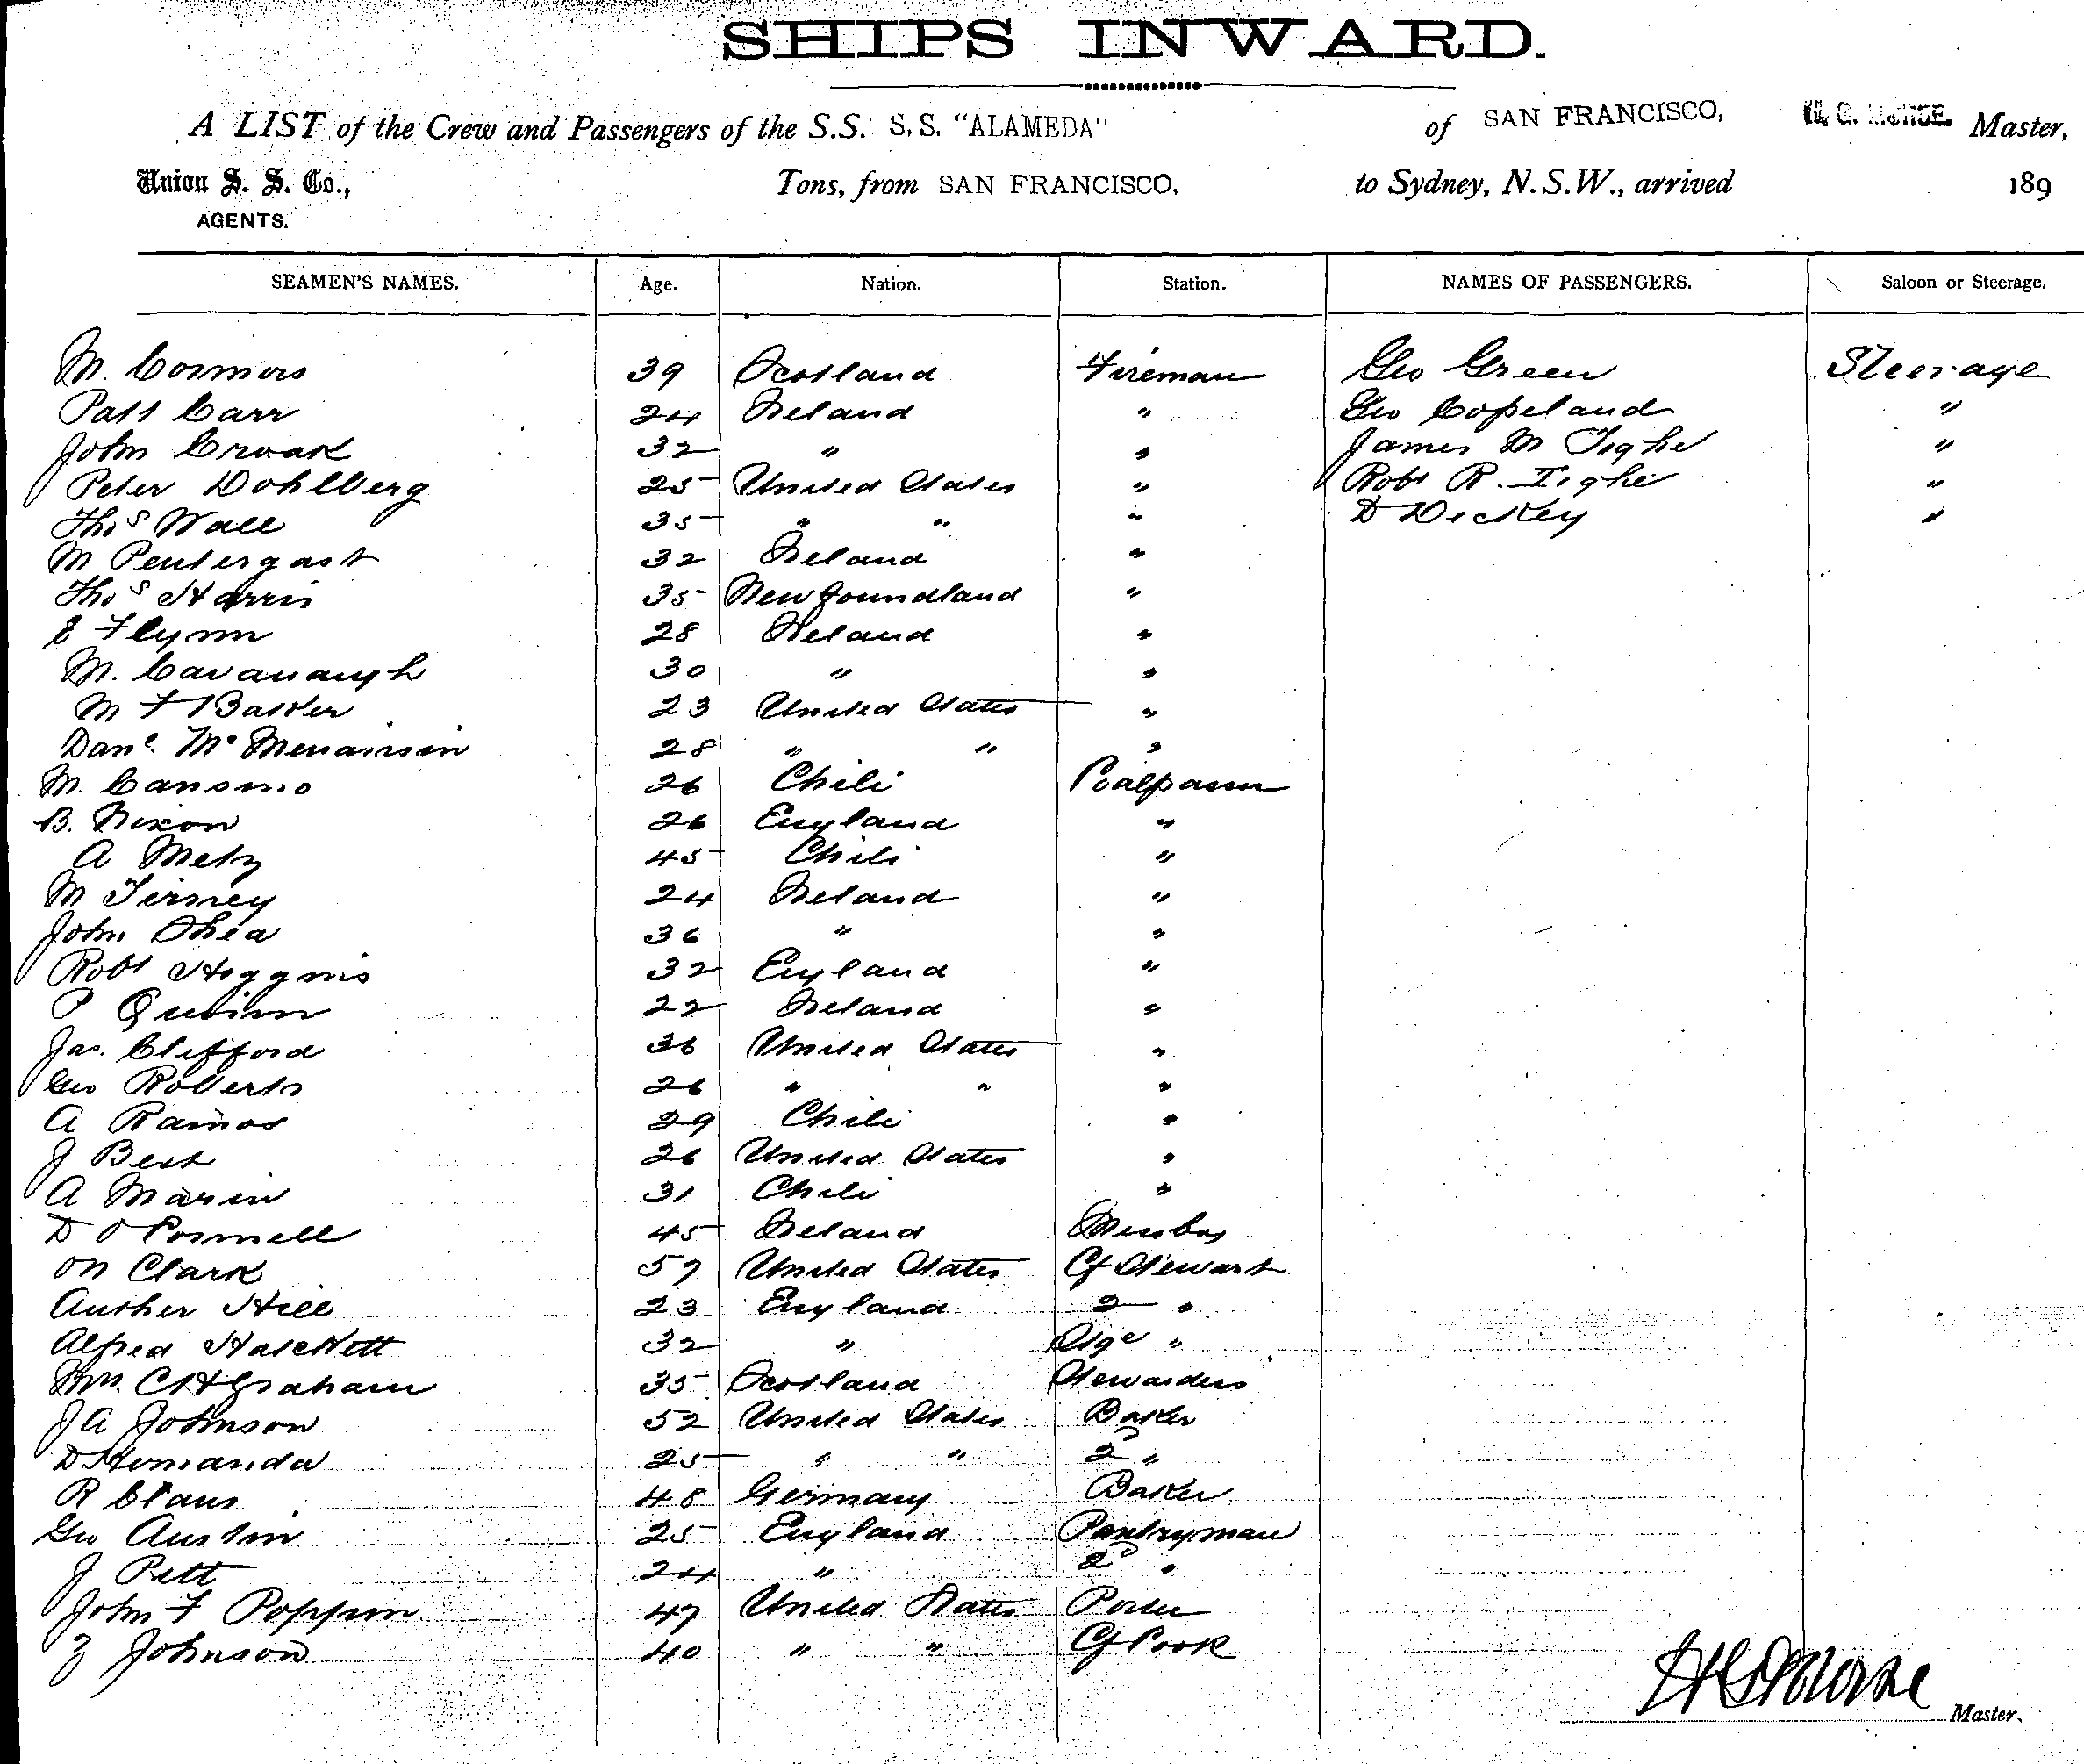 SHIPS INWARD.
A LIST of the Crew and Passengers of the S.S. S.S. "ALAMEDA" of SAN FRANCISCO, Master,
Union S. S. Co., Tons, from SAN FRANCISCO, to Sydney, N.S.W., arrived 189
AGENTS.
SEAMEN'S NAMES. Age. Nation. Station. NAMES OF PASSENGERS. Saloon or Steerage.
M. Connors 39 Scotland Fireman Geo Green Steerage
Patt Carr 24 Ireland " Geo Copeland "
John Croak 32 " " James M Tighe "
Peter Dohlberg 25 United States " Robt R. Tighe "
Thos Wall 35 " " " D Dickey "
M Pendergast 32 Ireland "
Thos Harris 35 Newfoundland "
E Flynn 28 Ireland "
M. Cavanaugh 30 " "
M F Baker 23 United States "
Danl. Mc 28 " " "
M. 26 Chili Coalpasser
B. Nixon 26 England "
A Metz 45 Chili "
M Tierney 24 Ireland "
John Shea 36 " "
Robt Higgins 32 England "
P Quinn 22 Ireland "
Jas. Clifford 36 United States "
Geo Roberts 26 " " "
A Ramos 29 Chili "
J Best 26 United States "
A Marin 31 Chili "
D O'Connell 45 Ireland Messboy
Clark 57 United States Cf Stewart
Author Hill 23 England 2 "
Alfred Halckett 32 " Stge "
Mrs. C H Graham 35 Scotland Stewardess
J A Johnson 52 United States Baker
D 25 " " 2 "
R Claus 48 Germany Baker
Geo Austin 25 England Pantryman
J Pett 24 " 2d "
John F Poppin 47 United States Porter
Z Johnson 40 " " Cf Cook
H G Morse Master.